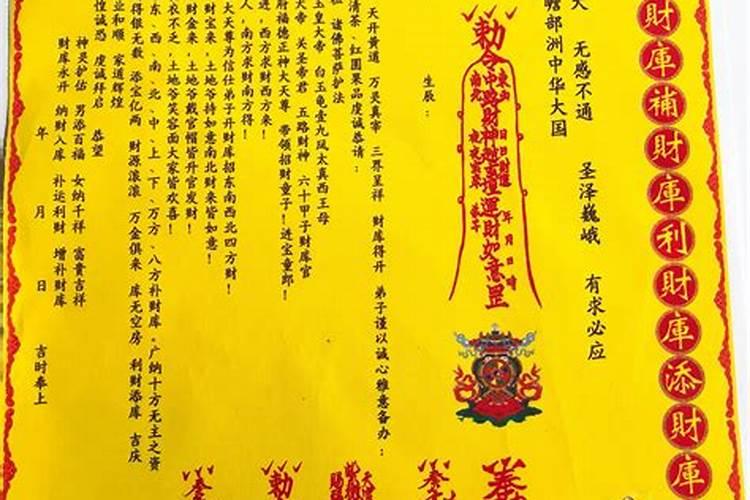 財庫補財庫利財庫添財庫
大 無感不通 圣泽巍峨 有求必应
瞻部洲中华大国
勅令
中路財神趙玄壇運財如意罡
年 月 日 時
生辰：
天开黄道 万灵真宰 三界呈祥 财库得开 弟子谨以诚心雅意备办：
清茶、红圆果品虔诚恭请：
诸佛菩萨护法
玉皇大帝 白玉龟壹九凤太真西王母
大帝 关圣帝君 五路财神 六十甲子财库官
府福德正神大天尊 带领招财童子！进宝童郎！
进，西方求财西方来！
人，南方求财南方得！
大天尊为信仕弟子开财库招东南西北四方财！
财宝来，土地爷持如意南北财来皆如意！
财金来，土地爷戴官帽皆升官发财！
衣不乏，土地爷笑容面大家皆欢喜！
东、西、南、北、中、上、下、万方、八方补财库。广纳十方无主之资
得银无数 添宝亿两 财源滚滚 万金俱来 库无空房 利财添库 吉庆
业和顺 家道辉煌
惶诚恐 虔诚拜启 恭望
神灵护佑 男添百福 女纳千祥 富贵吉祥
财库永开 纳财入库 补运利财 增补财库
年 月 日 吉时奉上